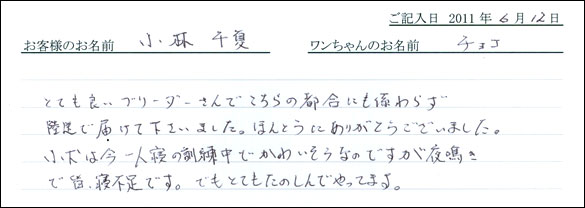 ご記入日 2011年 6月 12日
お客様のお名前 小林 千夏 ワンちゃんのお名前 チョコ
とても良いブリーダーさんでこちらの都合にも係わらず
陸送で届けて下さいました。ほんとうにありがとうございました。
小犬は今一人寝の訓練中でかわいそうなのですが夜鳴き
で皆、寝不足です。でもとてもたのしんでやってます。